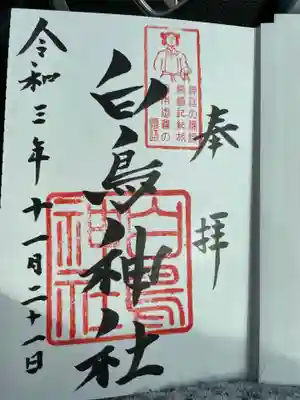 奉拝
白鳥神社
令和三年十一月二十一日
白鳥神社